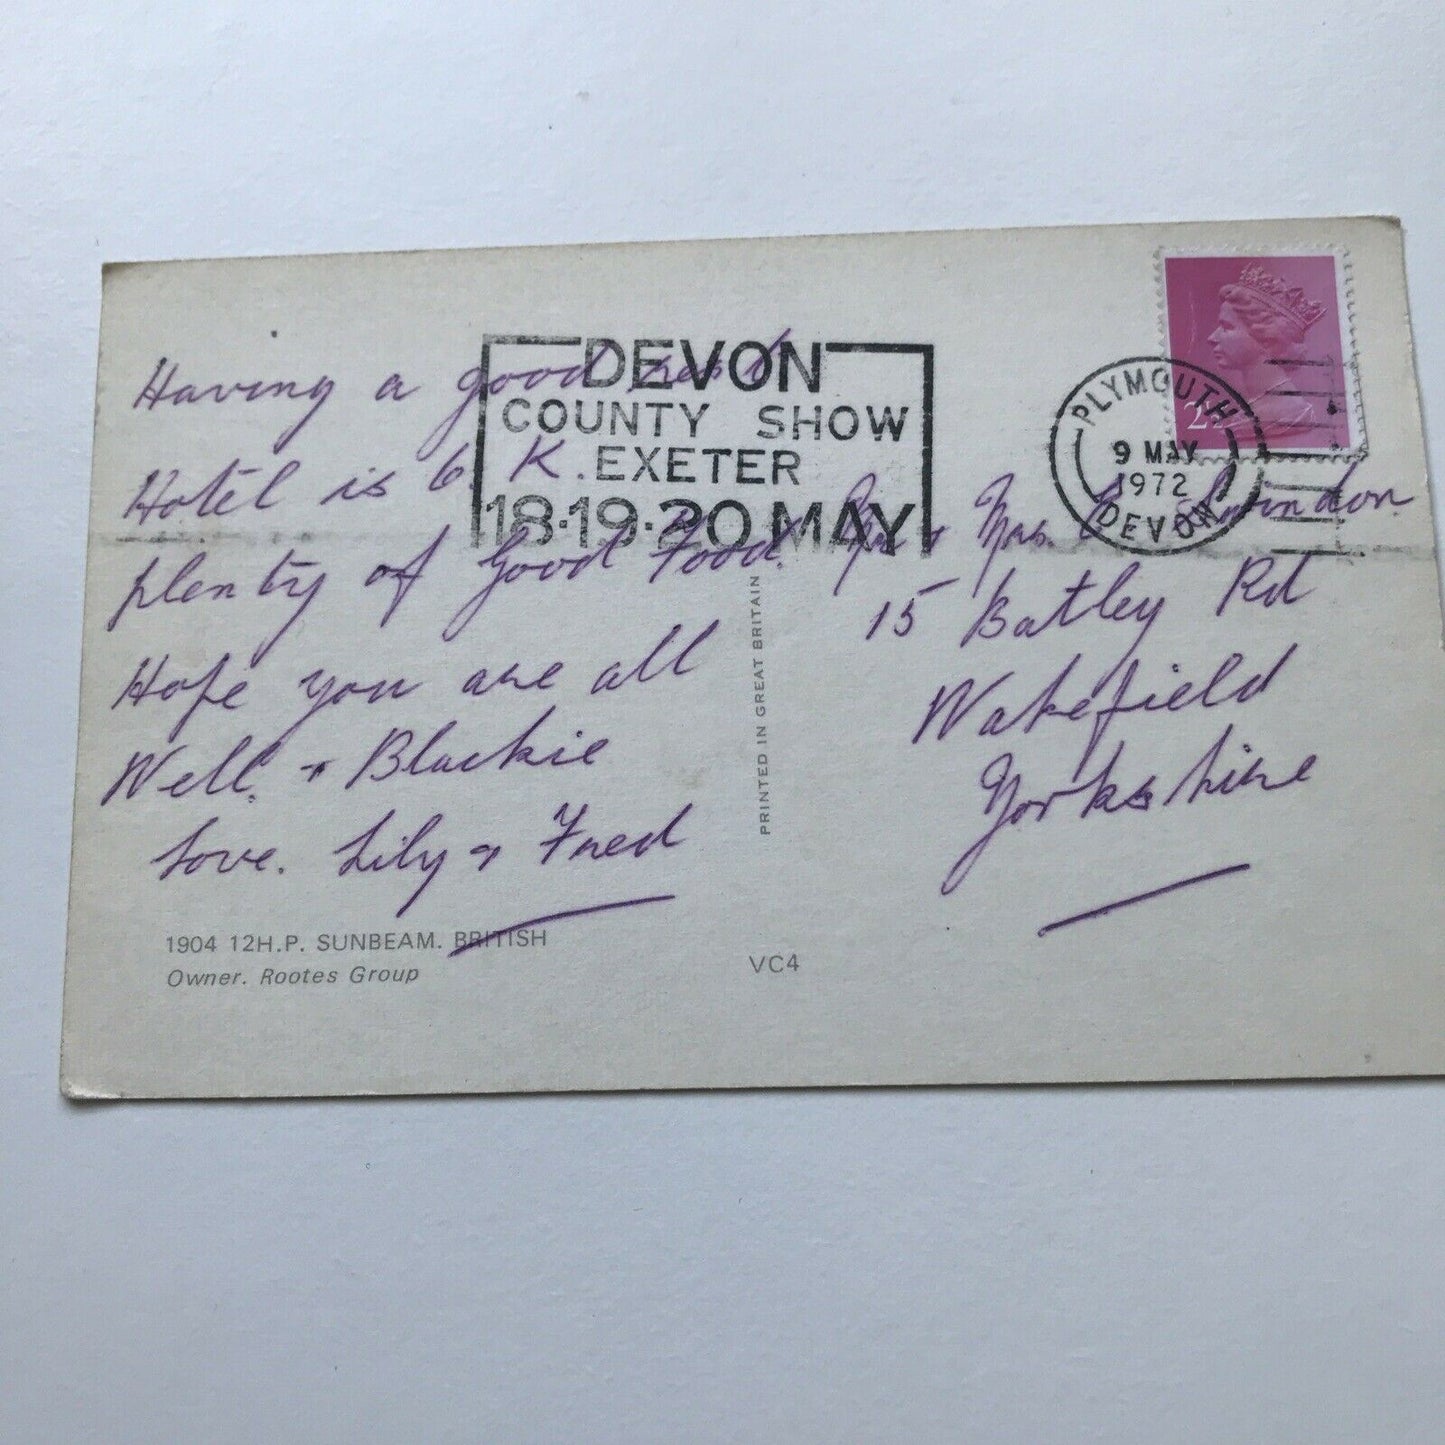 Having a good rest
Hotel is O.K.
plenty of Good Food.
Hope you are all
Well. + Blackie
Love. Lily + Fred
1904 12H.P. SUNBEAM. BRITISH
Owner. Rootes Group
DEVON
COUNTY SHOW
EXETER
18·19·20 MAY
PRINTED IN GREAT BRITAIN
VC4
PLYMOUTH
9 MAY
1972
DEVON
Mr + Mrs.
15 Batley Rd
Wakefield
Yorkshire